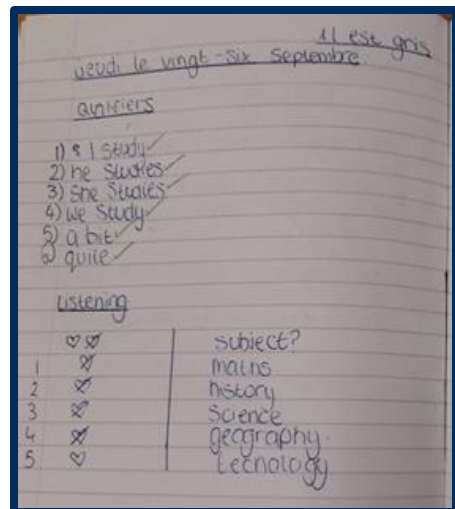 il est gris
Jeudi le vingt-six septembre
Qnifiers
1) I study
2) he studies
3) She studies
4) we study
5) a bit
6) quite
Listening
♡ ♡ subject?
1 ♡ maths
2 ♡ history
3 ♡ Science
4 ♡ geography.
5 ♡ tecnology